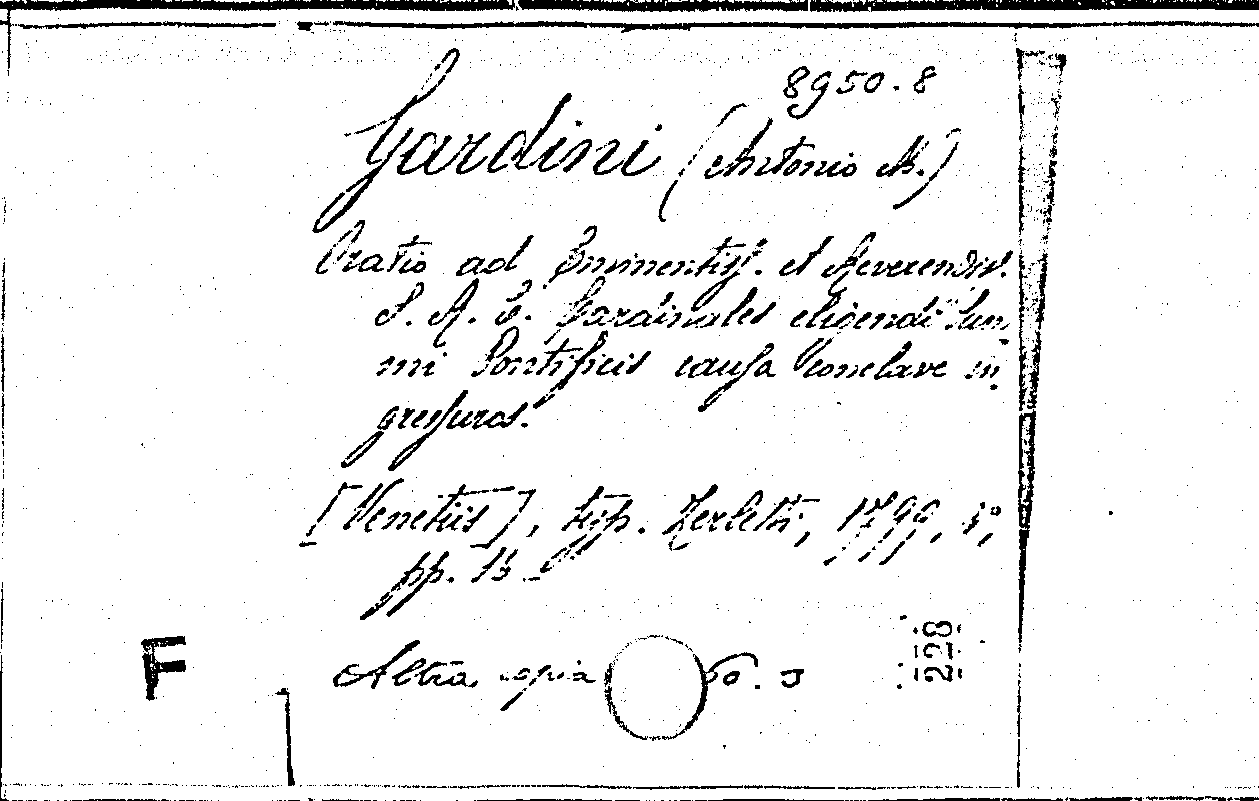 8950.8
Gardini (Antonio M.)
Oratio ad Eminentiss. et Reverendiss.
S. R. E. Cardinales eligendi Sum
mi Pontificis causa conclave in
gressuros.
[Venetiis], typ. Zerletti, 1799, 4°,
pp. 15
Altra copia 60.5
228
F